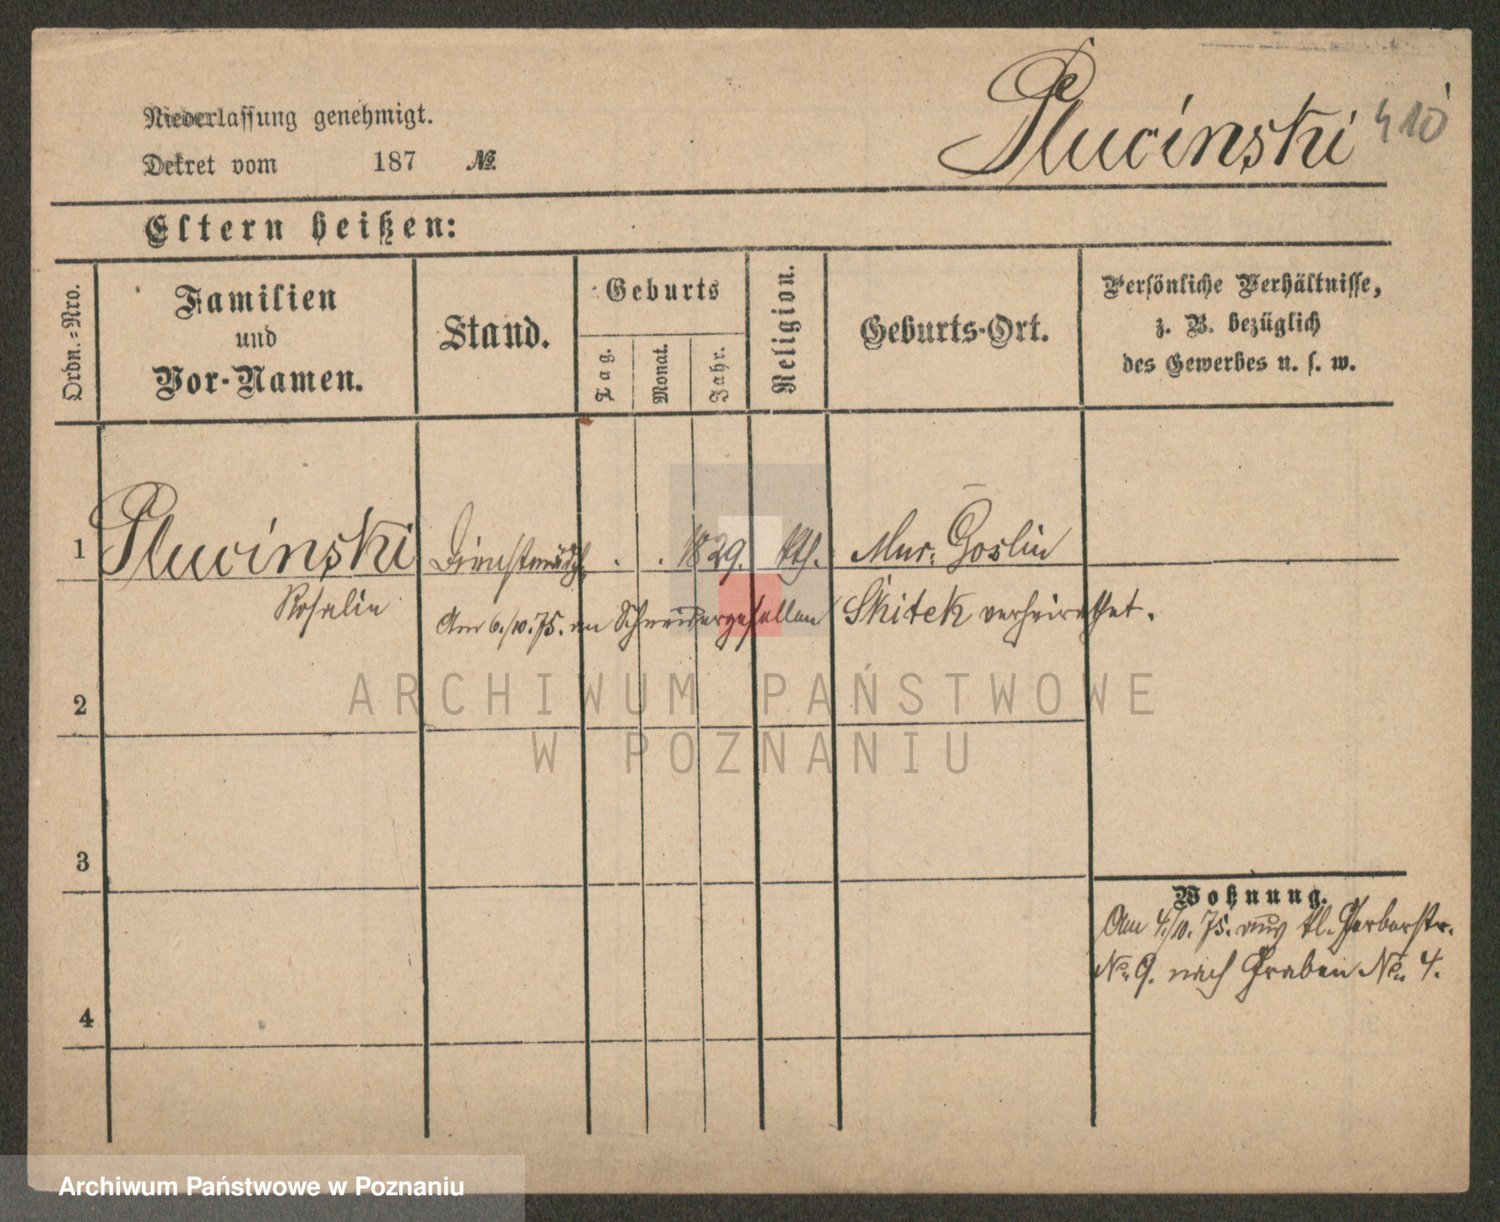 Plucinski 410
Niederlassung genehmigt.
Dekret vom 187 №
Eltern heißen:
Ordn.-Nro.
Familien
und
Vor-Namen.
Stand.
Geburts
Tag.
Monat.
Jahr.
Religion.
Geburts-Ort.
Persönliche Verhältnisse,
z. B. bezüglich
des Gewerbes u. s. w.
1 Plucinski Dienstmädch. . . 1829. kth. Mur. Goslin
Rosalin
Am 6./10. 75. an Schneidergesellen Skitek verheirathet.
2
3
4
Wohnung.
Am 4./10. 75. aus kl. Gerberstr.
No. 9. nach Graben No. 4.
ARCHIWUM PAŃSTWOWE
W POZNANIU
Archiwum Państwowe w Poznaniu